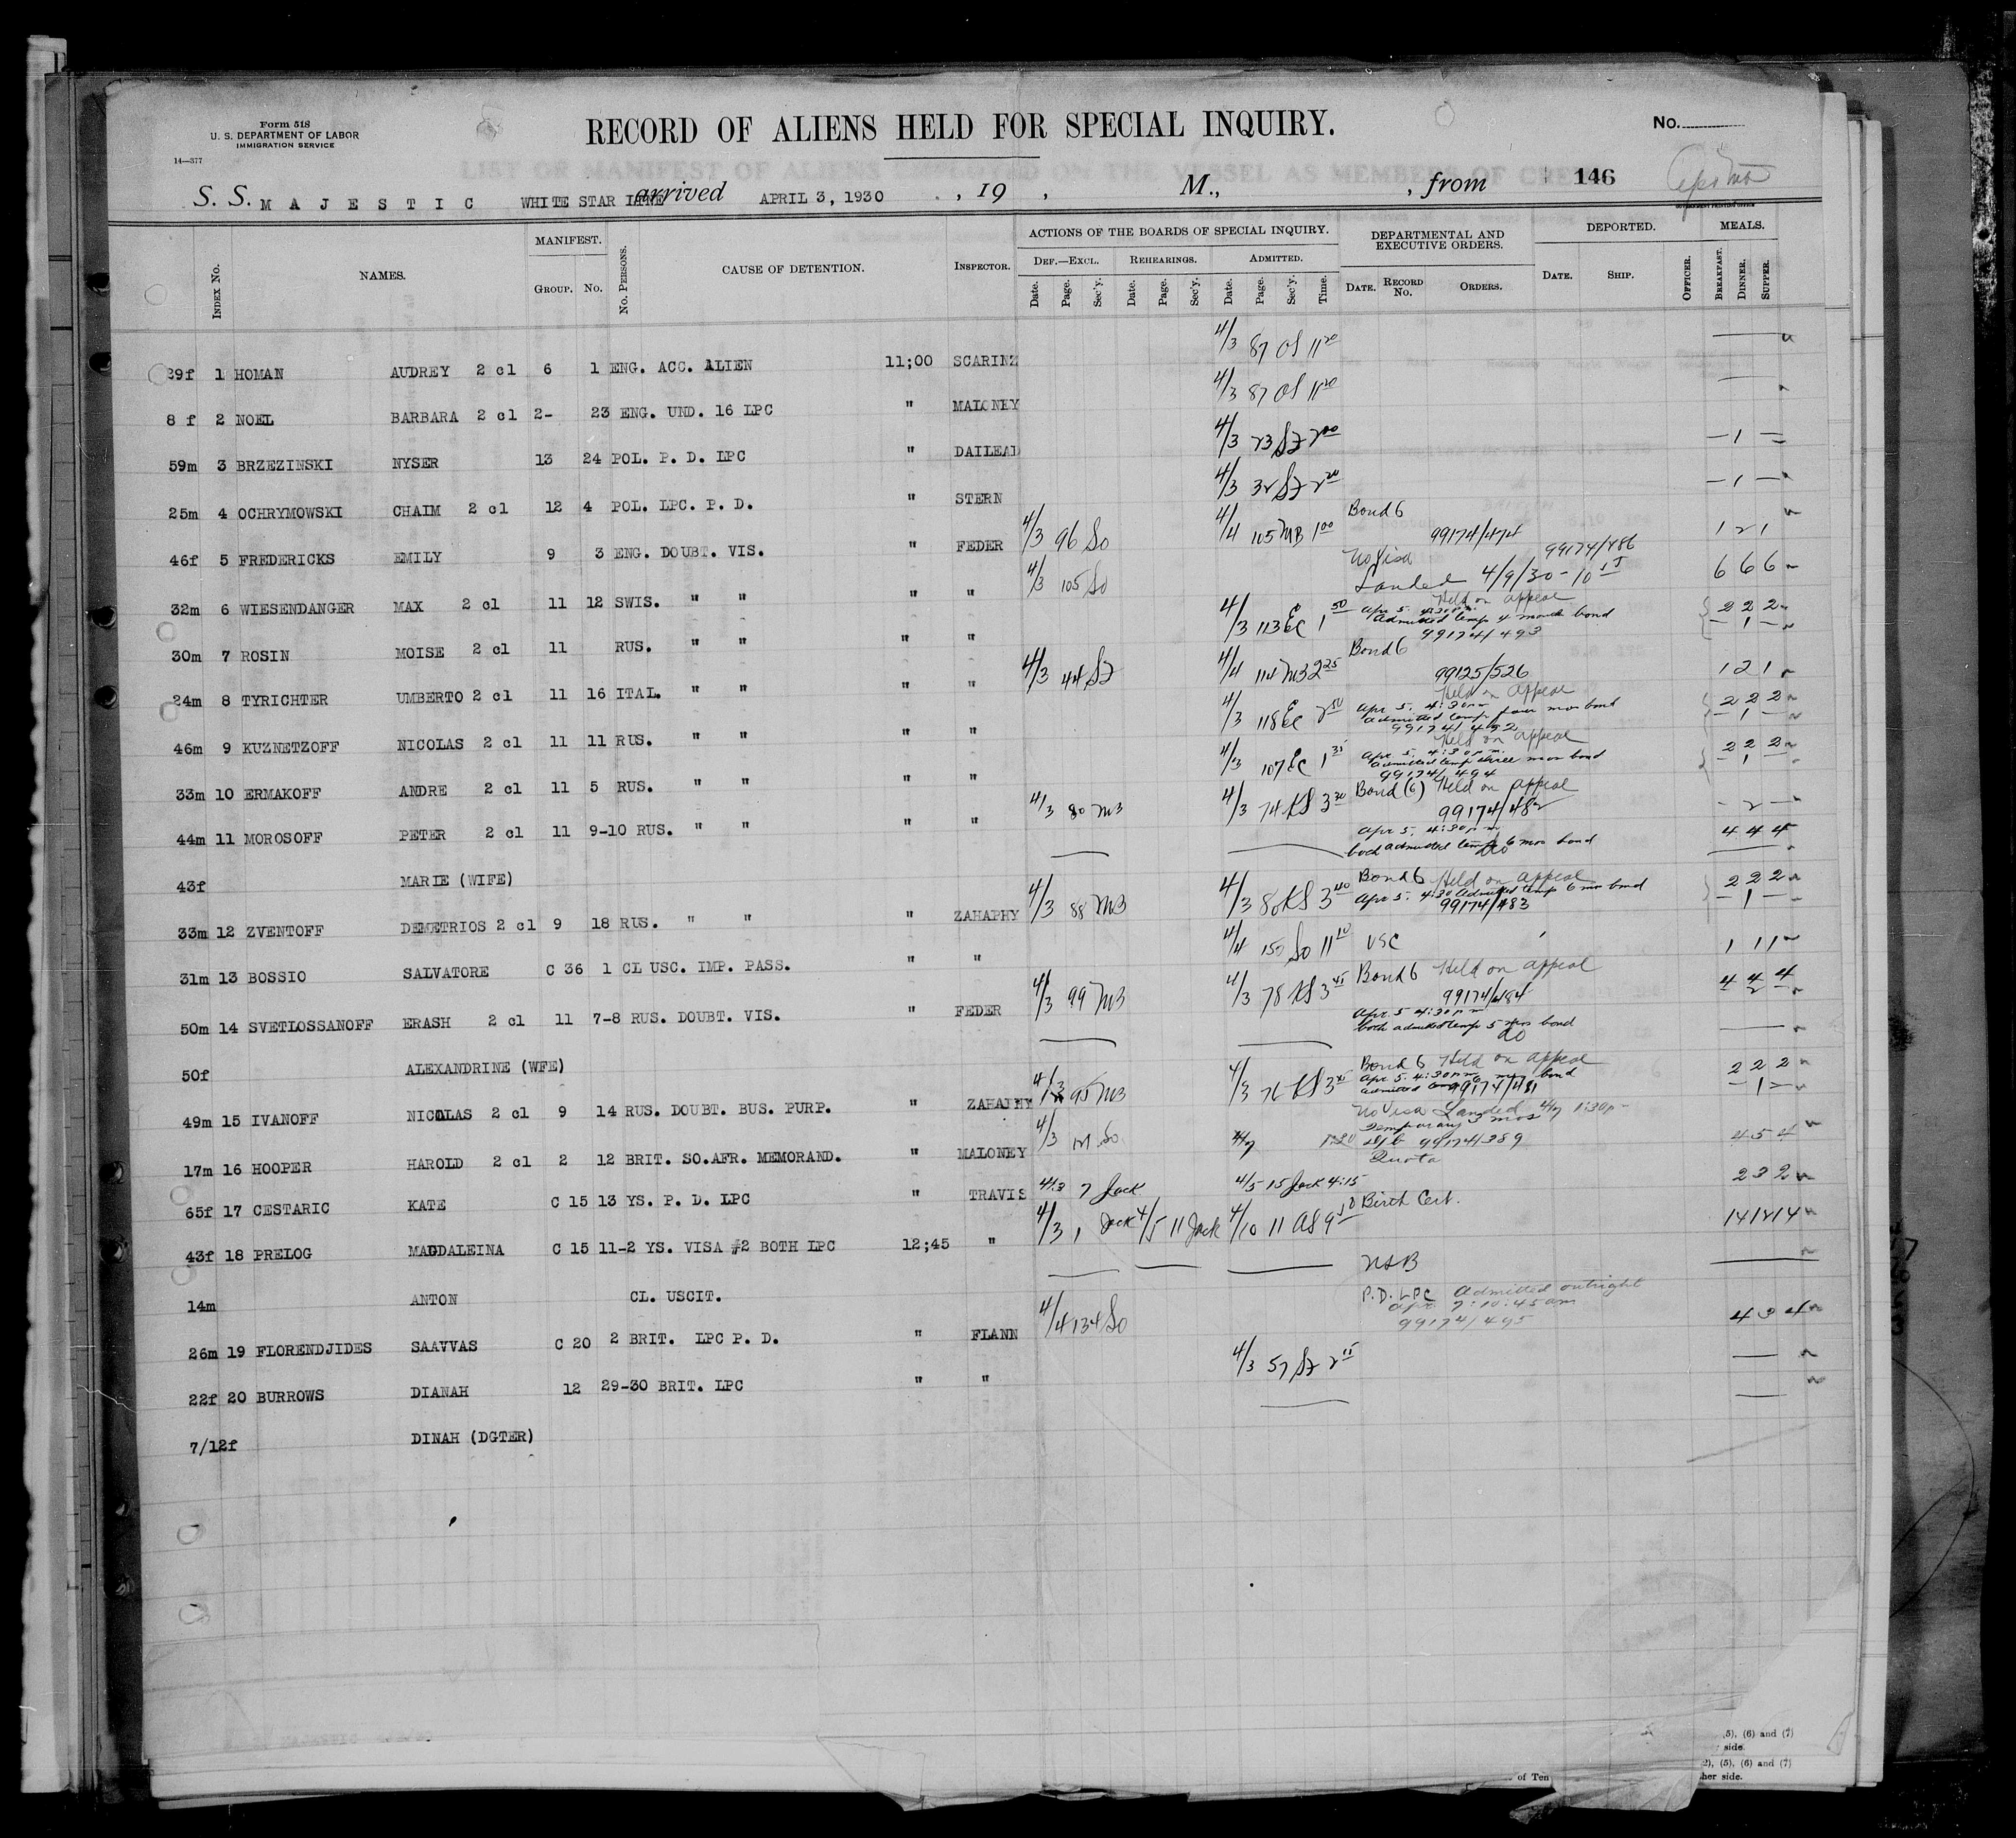 Form 518
U. S. DEPARTMENT OF LABOR
IMMIGRATION SERVICE
14—377
RECORD OF ALIENS HELD FOR SPECIAL INQUIRY.
No.
S. S. MAJESTIC WHITE STAR LINE arrived APRIL 3, 1930, 19 , M., , from 146
INDEX No. NAMES. MANIFEST. GROUP. No. No. PERSONS. CAUSE OF DETENTION. INSPECTOR. ACTIONS OF THE BOARDS OF SPECIAL INQUIRY. DEPARTMENTAL AND EXECUTIVE ORDERS. DEPORTED. MEALS.
DEF.—EXCL. REHEARINGS. ADMITTED.
Date. Page. Sec'y. Date. Page. Sec'y. Date. Page. Sec'y. Time. DATE. RECORD No. ORDERS. DATE. SHIP. OFFICER. BREAKFAST. DINNER. SUPPER.
29f 1 HOMAN AUDREY 2 cl 6 1 ENG. ACC. ALIEN 11;00 SCARINZ 4/3 87 OS 11 20
8 f 2 NOEL BARBARA 2 cl 2- 23 ENG. UND. 16 LPC " MALONEY 4/3 87 OS 11 20
59m 3 BRZEZINSKI NYSER 13 24 POL. P. D. LPC " DAILEAD 4/3 23 SZ 2 00 — 1 —
25m 4 OCHRYMOWSKI CHAIM 2 cl 12 4 POL. LPC. P. D. " STERN 4/3 32 SZ 2 20 — 1 —
46f 5 FREDERICKS EMILY 9 3 ENG. DOUBT. VIS. " FEDER 4/3 96 So 4/4 105 MB 1 00 Bond 6 99174/474 1 2 1
32m 6 WIESENDANGER MAX 2 cl 11 12 SWIS. " " " " 4/3 105 So No Visa 99174/486 Landed 4/9/30 - 10 15 6 6 6
30m 7 ROSIN MOISE 2 cl 11 RUS. " " " " 4/3 113 EC 1 50 Held on appeal Apr 5. 4:30 p.m. Admitted temp 4 month bond 99174/493 2 2 2 — 1 —
24m 8 TYRICHTER UMBERTO 2 cl 11 16 ITAL. " " " " 4/3 44 SZ 4/4 114 MB 2 25 Bond 6 99125/526 1 2 1
46m 9 KUZNETZOFF NICOLAS 2 cl 11 11 RUS. " " " " 4/3 118 EC 2 50 Held on appeal Apr 5. 4:30 pm admitted temp four mos bond 99174/492 2 2 2 — 1 —
33m 10 ERMAKOFF ANDRE 2 cl 11 5 RUS. " " " " 4/3 107 EC 1 35 Held on appeal Apr 5. 4:30 p.m. Admitted temp three mos bond 99174/494 2 2 2 — 1 —
44m 11 MOROSOFF PETER 2 cl 11 9-10 RUS. " " " " 4/3 80 MB 4/3 74 KS 3 30 Bond (6) Held on appeal 99174/482 Apr 5, 4:30 p.m. both admitted temp 6 mos bond - 2 - 4 4 4
43f MARIE (WIFE) do
33m 12 ZVENTOFF DEMETRIOS 2 cl 9 18 RUS. " " " ZAHAPHY 4/3 88 MB 4/3 80 KS 3 40 Bond 6 Held on appeal Apr 5. 4:30 Admitted temp 6 mo bond 99174/483 2 2 2 — 1 —
31m 13 BOSSIO SALVATORE C 36 1 CL USC. IMP. PASS. " " 4/4 150 So 11 10 USC 1 1 1
50m 14 SVETLOSSANOFF ERASH 2 cl 11 7-8 RUS. DOUBT. VIS. " FEDER 4/3 99 MB 4/3 78 KS 3 45 Bond 6 Held on appeal 99174/484 Apr. 5 4:30 pm both admitted temp 5 mos bond 4 4 4 - 2 -
50f ALEXANDRINE (WFE) do
49m 15 IVANOFF NICOLAS 2 cl 9 14 RUS. DOUBT. BUS. PURP. " ZAHAPHY 4/3 95 MB 4/3 76 KS 3 45 Bond 6 Held on appeal Apr 5. 4:30 pm admitted temp 6 mos bond 99174/481 2 2 2 — 1 —
17m 16 HOOPER HAROLD 2 cl 2 12 BRIT. SO.AFR. MEMORAND. " MALONEY 4/3 121 So 4/7 1:30 No Visa Landed 4/7 1:30p Temporary 3 mos 99174/389 Quota 4 5 4
65f 17 CESTARIC KATE C 15 13 YS. P. D. LPC " TRAVIS 4/3 7 Jack 4/5 15 Jack 4:15 2 3 2
43f 18 PRELOG MAGDALEINA C 15 11-2 YS. VISA #2 BOTH LPC 12;45 " 4/3 1 Jack 4/5 11 Jack 4/10 11 AS 9 50 Birth Cert. 14 12 14
14m ANTON CL. USCIT. USB
26m 19 FLORENDJIDES SAAVVAS C 20 2 BRIT. LPC P. D. " FLANN 4/4 134 So P.D. LPC Admitted outright Apr 7: 10:45 am 99174/495 4 3 4
22f 20 BURROWS DIANAH 12 29-30 BRIT. LPC " " 4/3 57 SZ 2 15
7/12f DINAH (DGTER)
(5), (6) and (7)
side.
2), (5), (6) and (7)
her side.
of Ten